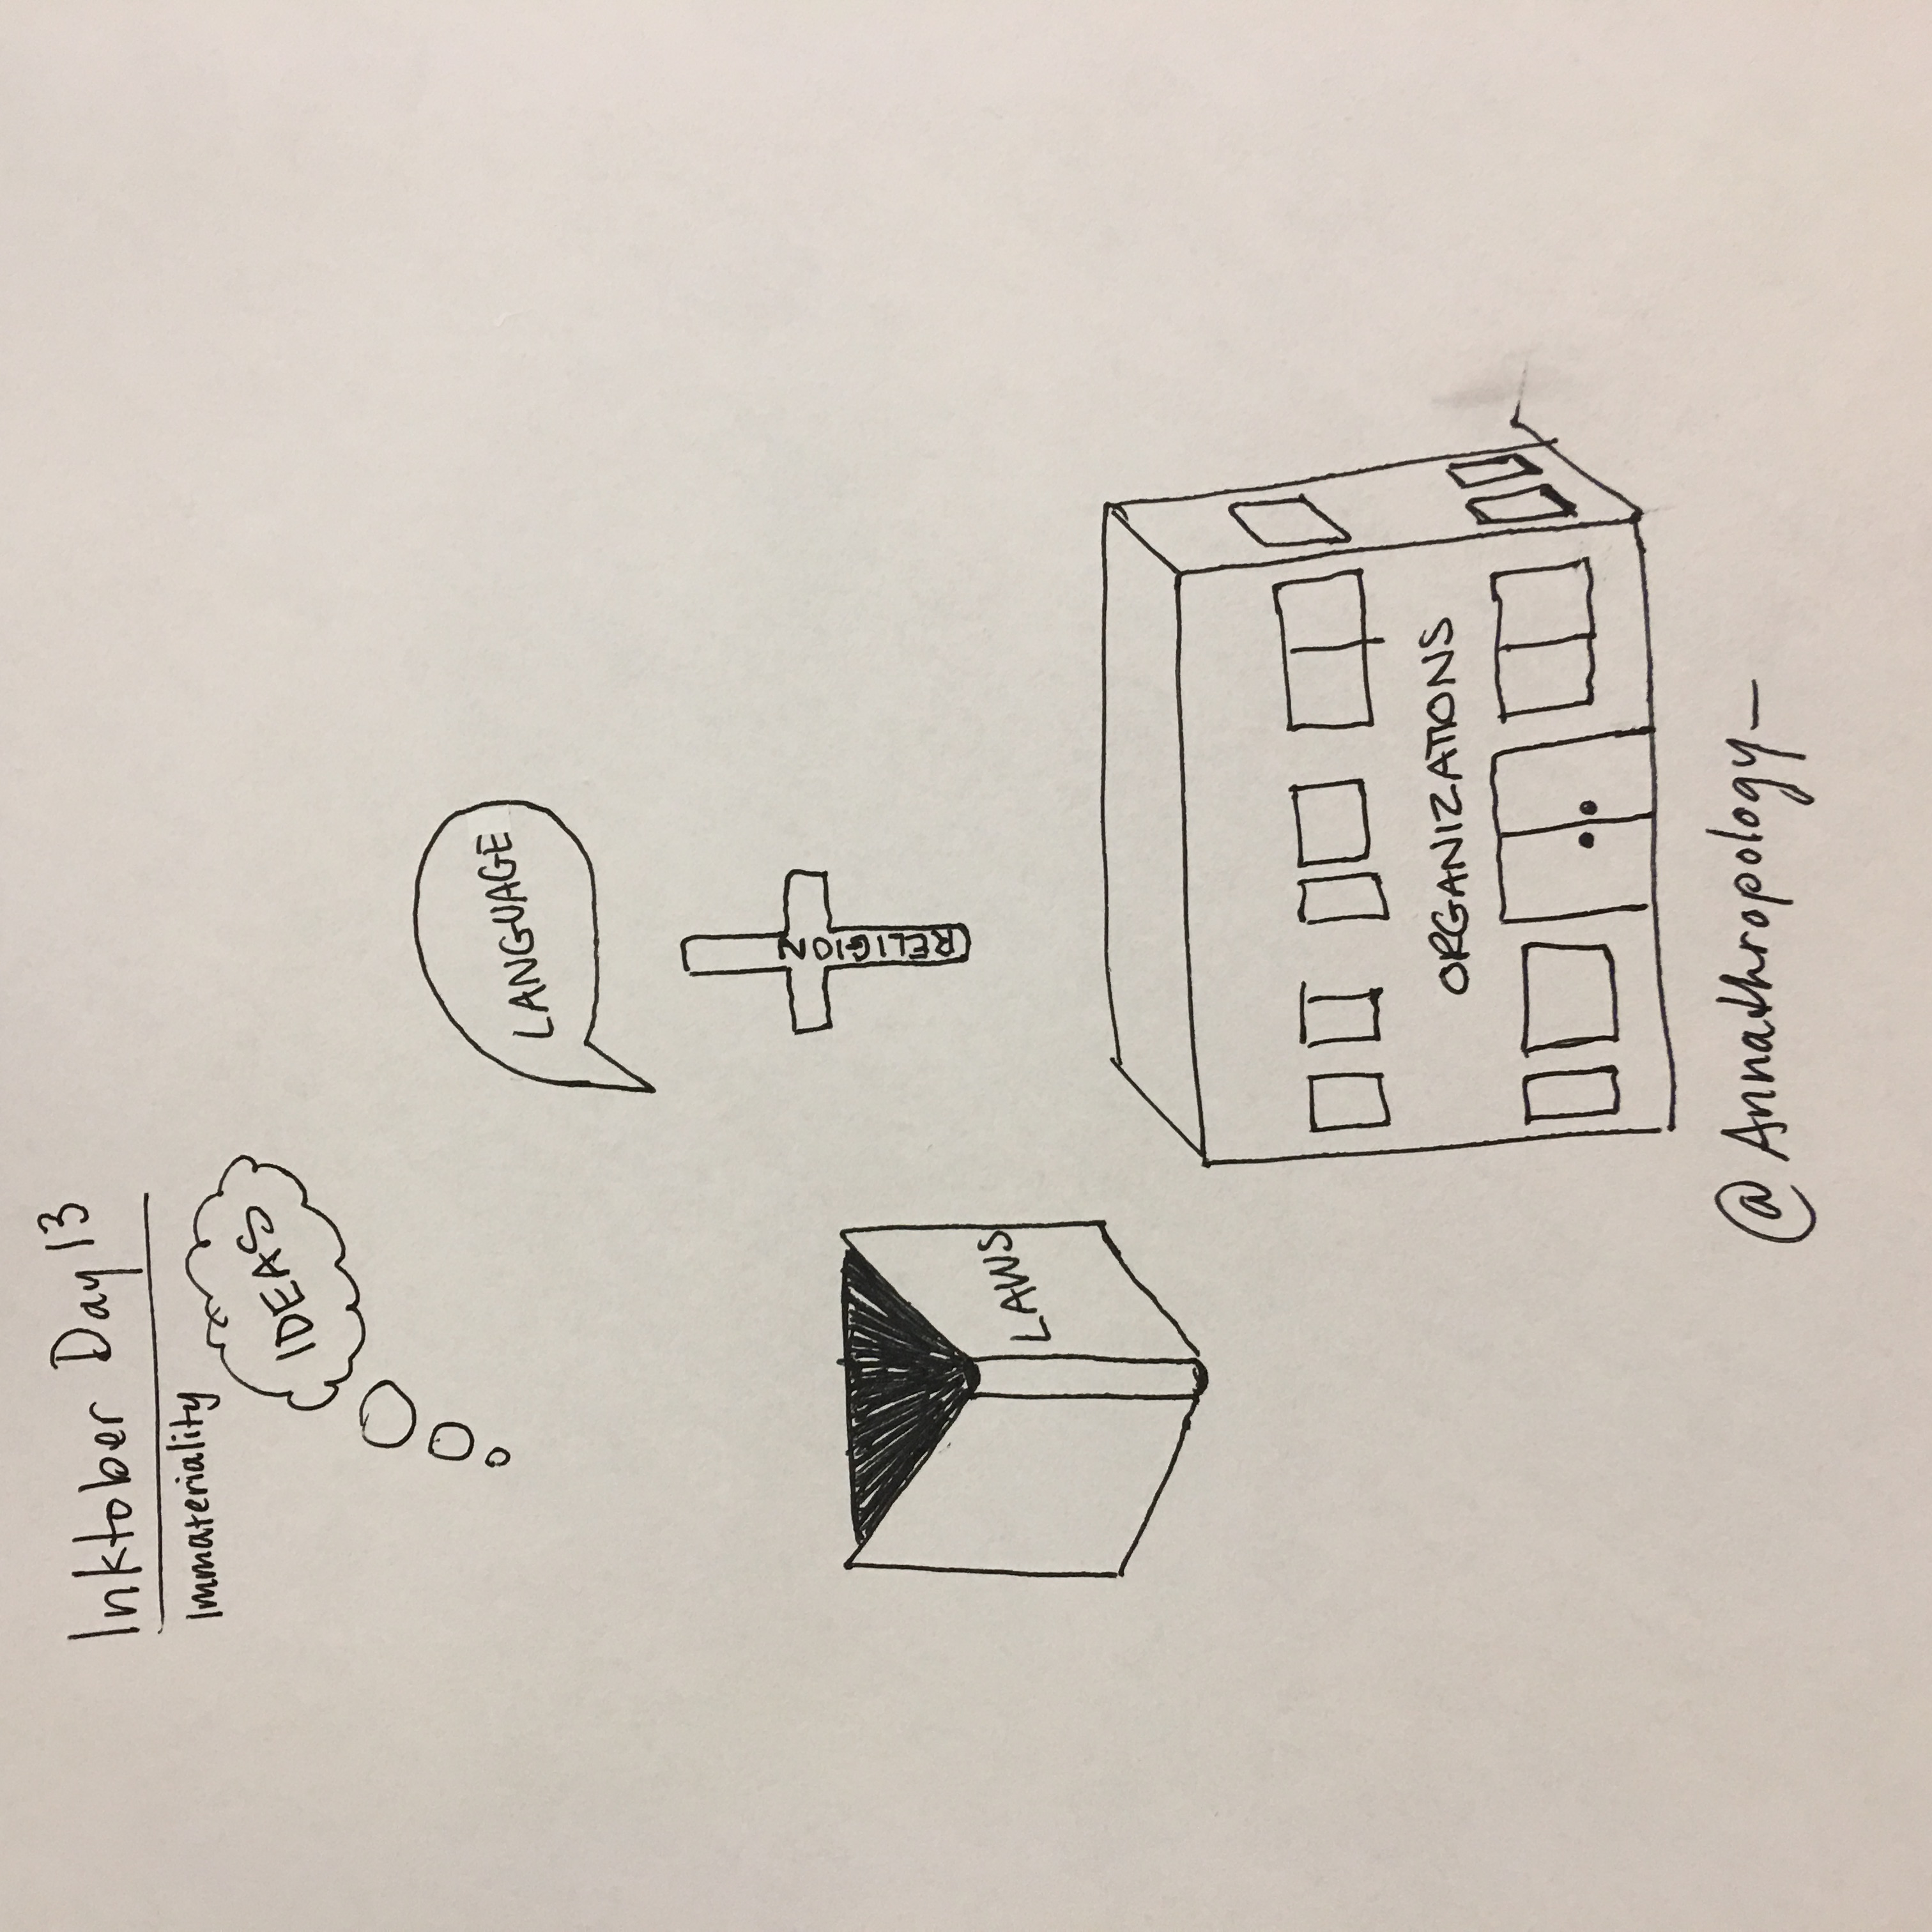 Inktober Day 13
Immateriality
IDEAS
LANGUAGE
RELIGION
LAWS
ORGANIZATIONS
@Annathropology_